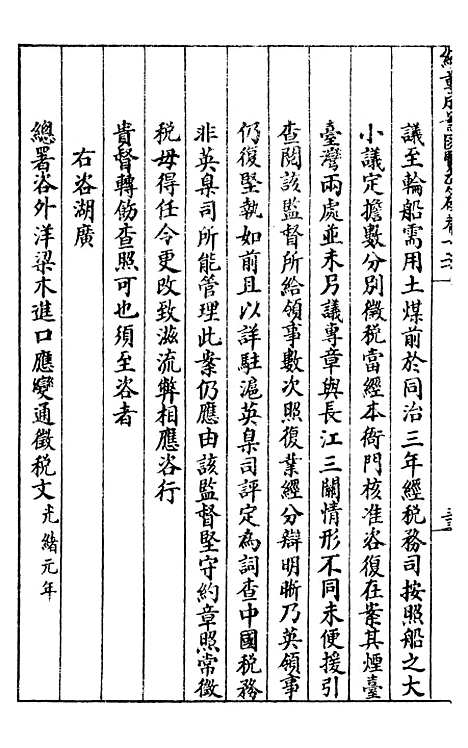 議至輪船需用土煤前於同治三年經稅務司按照船之大
小議定擔數分別徵稅當經本衙門核准咨復在案其煙臺
臺灣兩處並未另議專章與長江三關情形不同未便援引
查閱該監督所給領事數次照復業經分辯明晰乃英領事
仍復堅執如前且以詳駐滬英臬司評定為詞查中國稅務
非英臬司所能管理此案仍應由該監督堅守約章照常徵
稅毋得任令更改致滋流弊相應咨行
貴督轉飭查照可也須至咨者
右咨湖廣
總署咨外洋梁木進口應變通徵稅文光緒元年